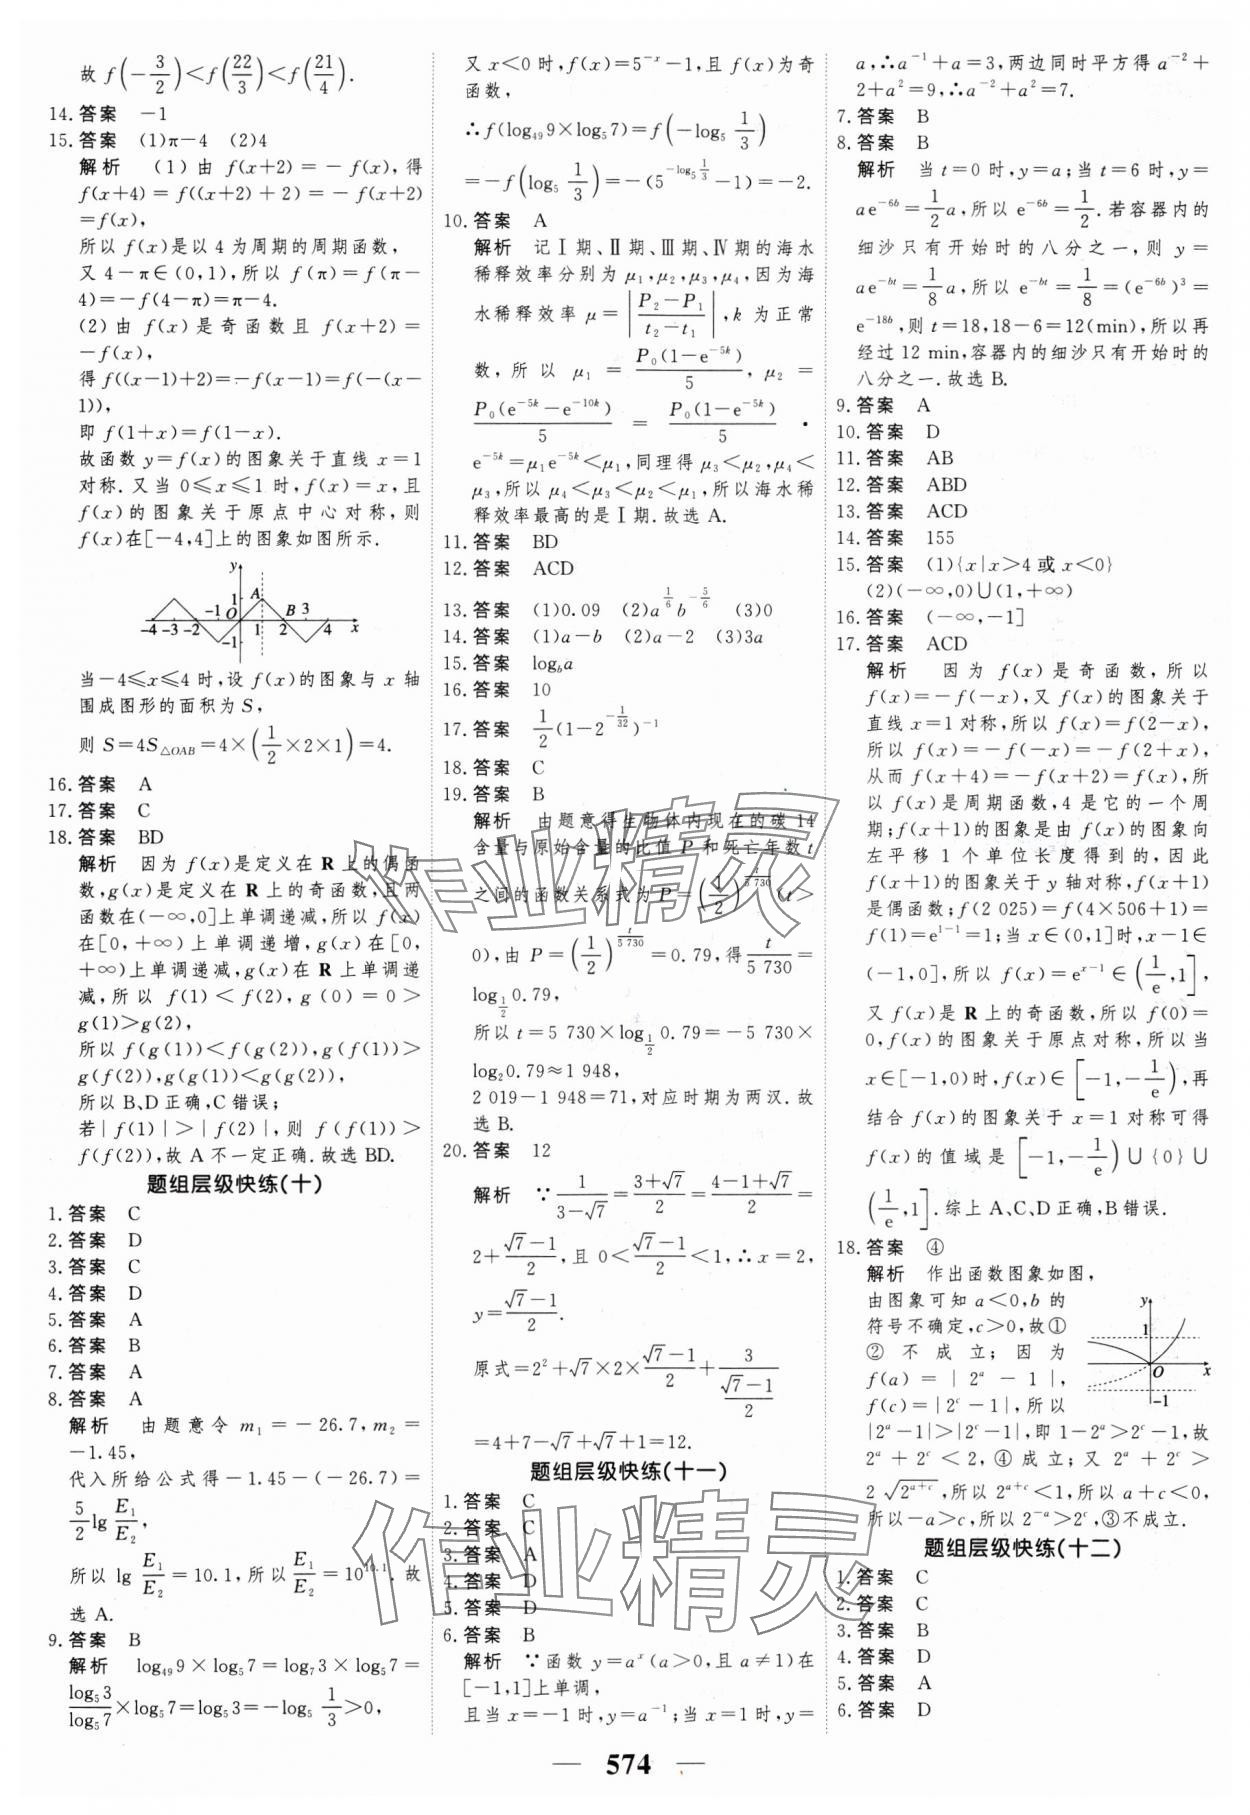 故 f(-3/2)<f(22/3)<f(21/4).
14. 答案 -1
15. 答案 (1)π-4 (2)4
解析 (1)由 f(x+2)=-f(x),得
f(x+4)=f((x+2)+2)=-f(x+2)
=f(x),
所以 f(x)是以 4 为周期的周期函数,
又 4-π∈(0,1),所以 f(π)=f(π-
4)=-f(4-π)=π-4.
(2)由 f(x)是奇函数且 f(x+2)=
-f(x),
得 f((x-1)+2)=-f(x-1)=f(-(x-
1)),
即 f(1+x)=f(1-x).
故函数 y=f(x)的图象关于直线 x=1
对称.又当 0≤x≤1 时,f(x)=x,且
f(x)的图象关于原点中心对称,则
f(x)在[-4,4]上的图象如图所示.
y
1 A
-4 -3 -2 -1 O 1 2 B 3 4 x
-1
当-4≤x≤4 时,设 f(x)的图象与 x 轴
围成图形的面积为 S,
则 S=4S△OAB=4×(1/2×2×1)=4.
16. 答案 A
17. 答案 C
18. 答案 BD
解析 因为 f(x)是定义在 R 上的偶函
数,g(x)是定义在 R 上的奇函数,且两
函数在(-∞,0]上单调递减,所以 f(x)
在[0,+∞)上单调递增,g(x)在[0,
+∞)上单调递减,g(x)在 R 上单调递
减,所以 f(1)<f(2),g(0)=0>
g(1)>g(2),
所以 f(g(1))<f(g(2)),g(f(1))>
g(f(2)),g(g(1))<g(g(2)),
所以 B、D 正确,C 错误;
若|f(1)|>|f(2)|,则 f(f(1))>
f(f(2)),故 A 不一定正确.故选 BD.
题组层级快练(十)
1. 答案 C
2. 答案 D
3. 答案 C
4. 答案 D
5. 答案 A
6. 答案 B
7. 答案 A
8. 答案 A
解析 由题意令 m₁=-26.7,m₂=
-1.45,
代入所给公式得-1.45-(-26.7)=
5/2 lg E₁/E₂,
所以 lg E₁/E₂=10.1,所以E₁/E₂=10^10.1.故
选 A.
9. 答案 B
解析 log₄₉9×log₅7=log₇3×log₅7=
log₅3/log₅7×log₅7=log₅3=-log₅ 1/3>0,
又 x<0 时,f(x)=5^-x-1,且 f(x)为奇
函数,
∴f(log₄₉9×log₅7)=f(-log₅ 1/3)
=-f(log₅ 1/3)=-(5^(-log₅ 1/3)-1)=-2.
10. 答案 A
解析 记Ⅰ期、Ⅱ期、Ⅲ期、Ⅳ期的海水
稀释效率分别为 μ₁,μ₂,μ₃,μ₄,因为海
水稀释效率 μ=|(P₂-P₁)/(t₂-t₁)|,k 为正常
数,所以 μ₁=P₀(1-e^-5k)/5,μ₂=
P₀(e^-5k-e^-10k)/5 = P₀(1-e^-5k)/5 ·
e^-5k=μ₁e^-5k<μ₁,同理得 μ₃<μ₂,μ₄<
μ₃,所以 μ₄<μ₃<μ₂<μ₁,所以海水稀
释效率最高的是Ⅰ期.故选 A.
11. 答案 BD
12. 答案 ACD
13. 答案 (1)0.09 (2)a^(1/6)b^(-5/6) (3)0
14. 答案 (1)a-b (2)a-2 (3)3a
15. 答案 log_b a
16. 答案 10
17. 答案 1/2(1-2^(-1/32))^-1
18. 答案 C
19. 答案 B
解析 由题意得生物体内现在的碳 14
含量与原始含量的比值 P 和死亡年数 t
之间的函数关系式为 P=(1/2)^(t/5 730)(t>
0),由 P=(1/2)^(t/5 730)=0.79,得t/5 730=
log_(1/2)0.79,
所以 t=5 730×log_(1/2)0.79=-5 730×
log₂0.79≈1 948,
2 019-1 948=71,对应时期为两汉.故
选 B.
20. 答案 12
解析 ∵1/(3-√7)=(3+√7)/2=(4-1+√7)/2=
2+(√7-1)/2,且 0<(√7-1)/2<1,∴x=2,
y=(√7-1)/2.
原式=2²+√7×2×(√7-1)/2+3/((√7-1)/2)
=4+7-√7+√7+1=12.
题组层级快练(十一)
1. 答案 C
2. 答案 C
3. 答案 A
4. 答案 D
5. 答案 D
6. 答案 B
解析 ∵函数 y=a^x(a>0,且 a≠1)在
[-1,1]上单调,
且当 x=-1 时,y=a^-1;当 x=1 时,y=
a,∴a^-1+a=3,两边同时平方得 a^-2+
2+a²=9,∴a^-2+a²=7.
7. 答案 B
8. 答案 B
解析 当 t=0 时,y=a;当 t=6 时,y=
ae^-6b=1/2a,所以 e^-6b=1/2.若容器内的
细沙只有开始时的八分之一,则 y=
ae^-bt=1/8a,所以 e^-bt=1/8=(e^-6b)³=
e^-18b,则 t=18,18-6=12(min),所以再
经过 12 min,容器内的细沙只有开始时的
八分之一.故选 B.
9. 答案 A
10. 答案 D
11. 答案 AB
12. 答案 ABD
13. 答案 ACD
14. 答案 155
15. 答案 (1){x|x>4 或 x<0}
(2)(-∞,0)∪(1,+∞)
16. 答案 (-∞,-1]
17. 答案 ACD
解析 因为 f(x)是奇函数,所以
f(x)=-f(-x),又 f(x)的图象关于
直线 x=1 对称,所以 f(x)=f(2-x),
所以 f(x)=-f(-x)=-f(2+x),
从而 f(x+4)=-f(x+2)=f(x),所
以 f(x)是周期函数,4 是它的一个周
期;f(x+1)的图象是由 f(x)的图象向
左平移 1 个单位长度得到的,因此
f(x+1)的图象关于 y 轴对称,f(x+1)
是偶函数;f(2 025)=f(4×506+1)=
f(1)=e^(1-1)=1;当 x∈(0,1]时,x-1∈
(-1,0],所以 f(x)=e^(x-1)∈(1/e,1],
又 f(x)是 R 上的奇函数,所以 f(0)=
0,f(x)的图象关于原点对称,所以当
x∈[-1,0)时,f(x)∈[-1,-1/e),再
结合 f(x)的图象关于 x=1 对称可得
f(x)的值域是[-1,-1/e)∪{0}∪
(1/e,1].综上 A、C、D 正确,B 错误.
18. 答案 ④
解析 作出函数图象如图,
由图象可知 a<0,b 的
符号不确定,c>0,故①
②不成立;因为
f(a)=|2^a-1|,
f(c)=|2^c-1|,所以
y
1
O x
-1
|2^a-1|>|2^c-1|,即 1-2^a>2^c-1,故
2^a+2^c<2,④成立;又 2^a+2^c>
2√(2^(a+c)),所以 2^(a+c)<1,所以 a+c<0,
所以-a>c,所以 2^-a>2^c,③不成立.
题组层级快练(十二)
1. 答案 C
2. 答案 C
3. 答案 B
4. 答案 D
5. 答案 A
6. 答案 D
作业精灵
作业精灵
— 574 —